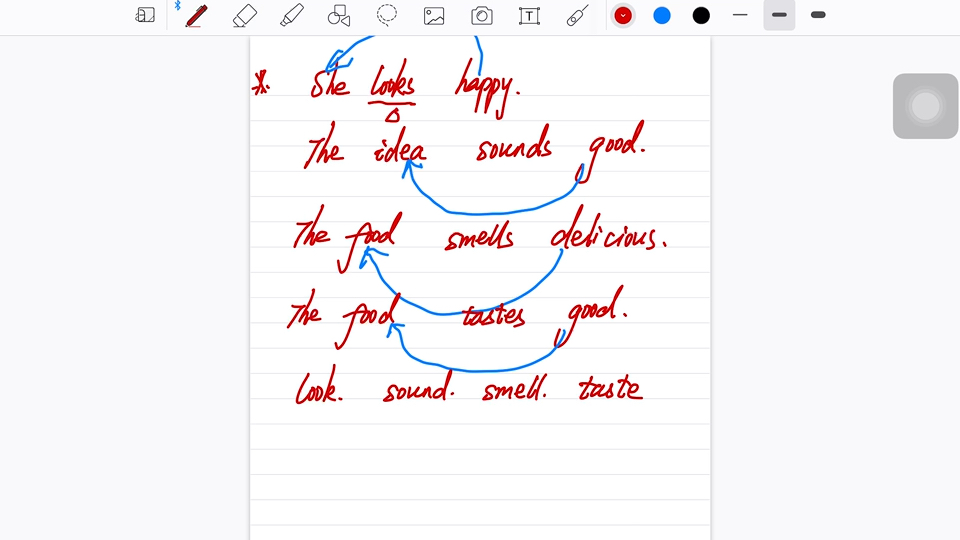 *. She looks happy.
The idea sounds good.
The food smells delicious.
The food tastes good.
look. sound. smell. taste